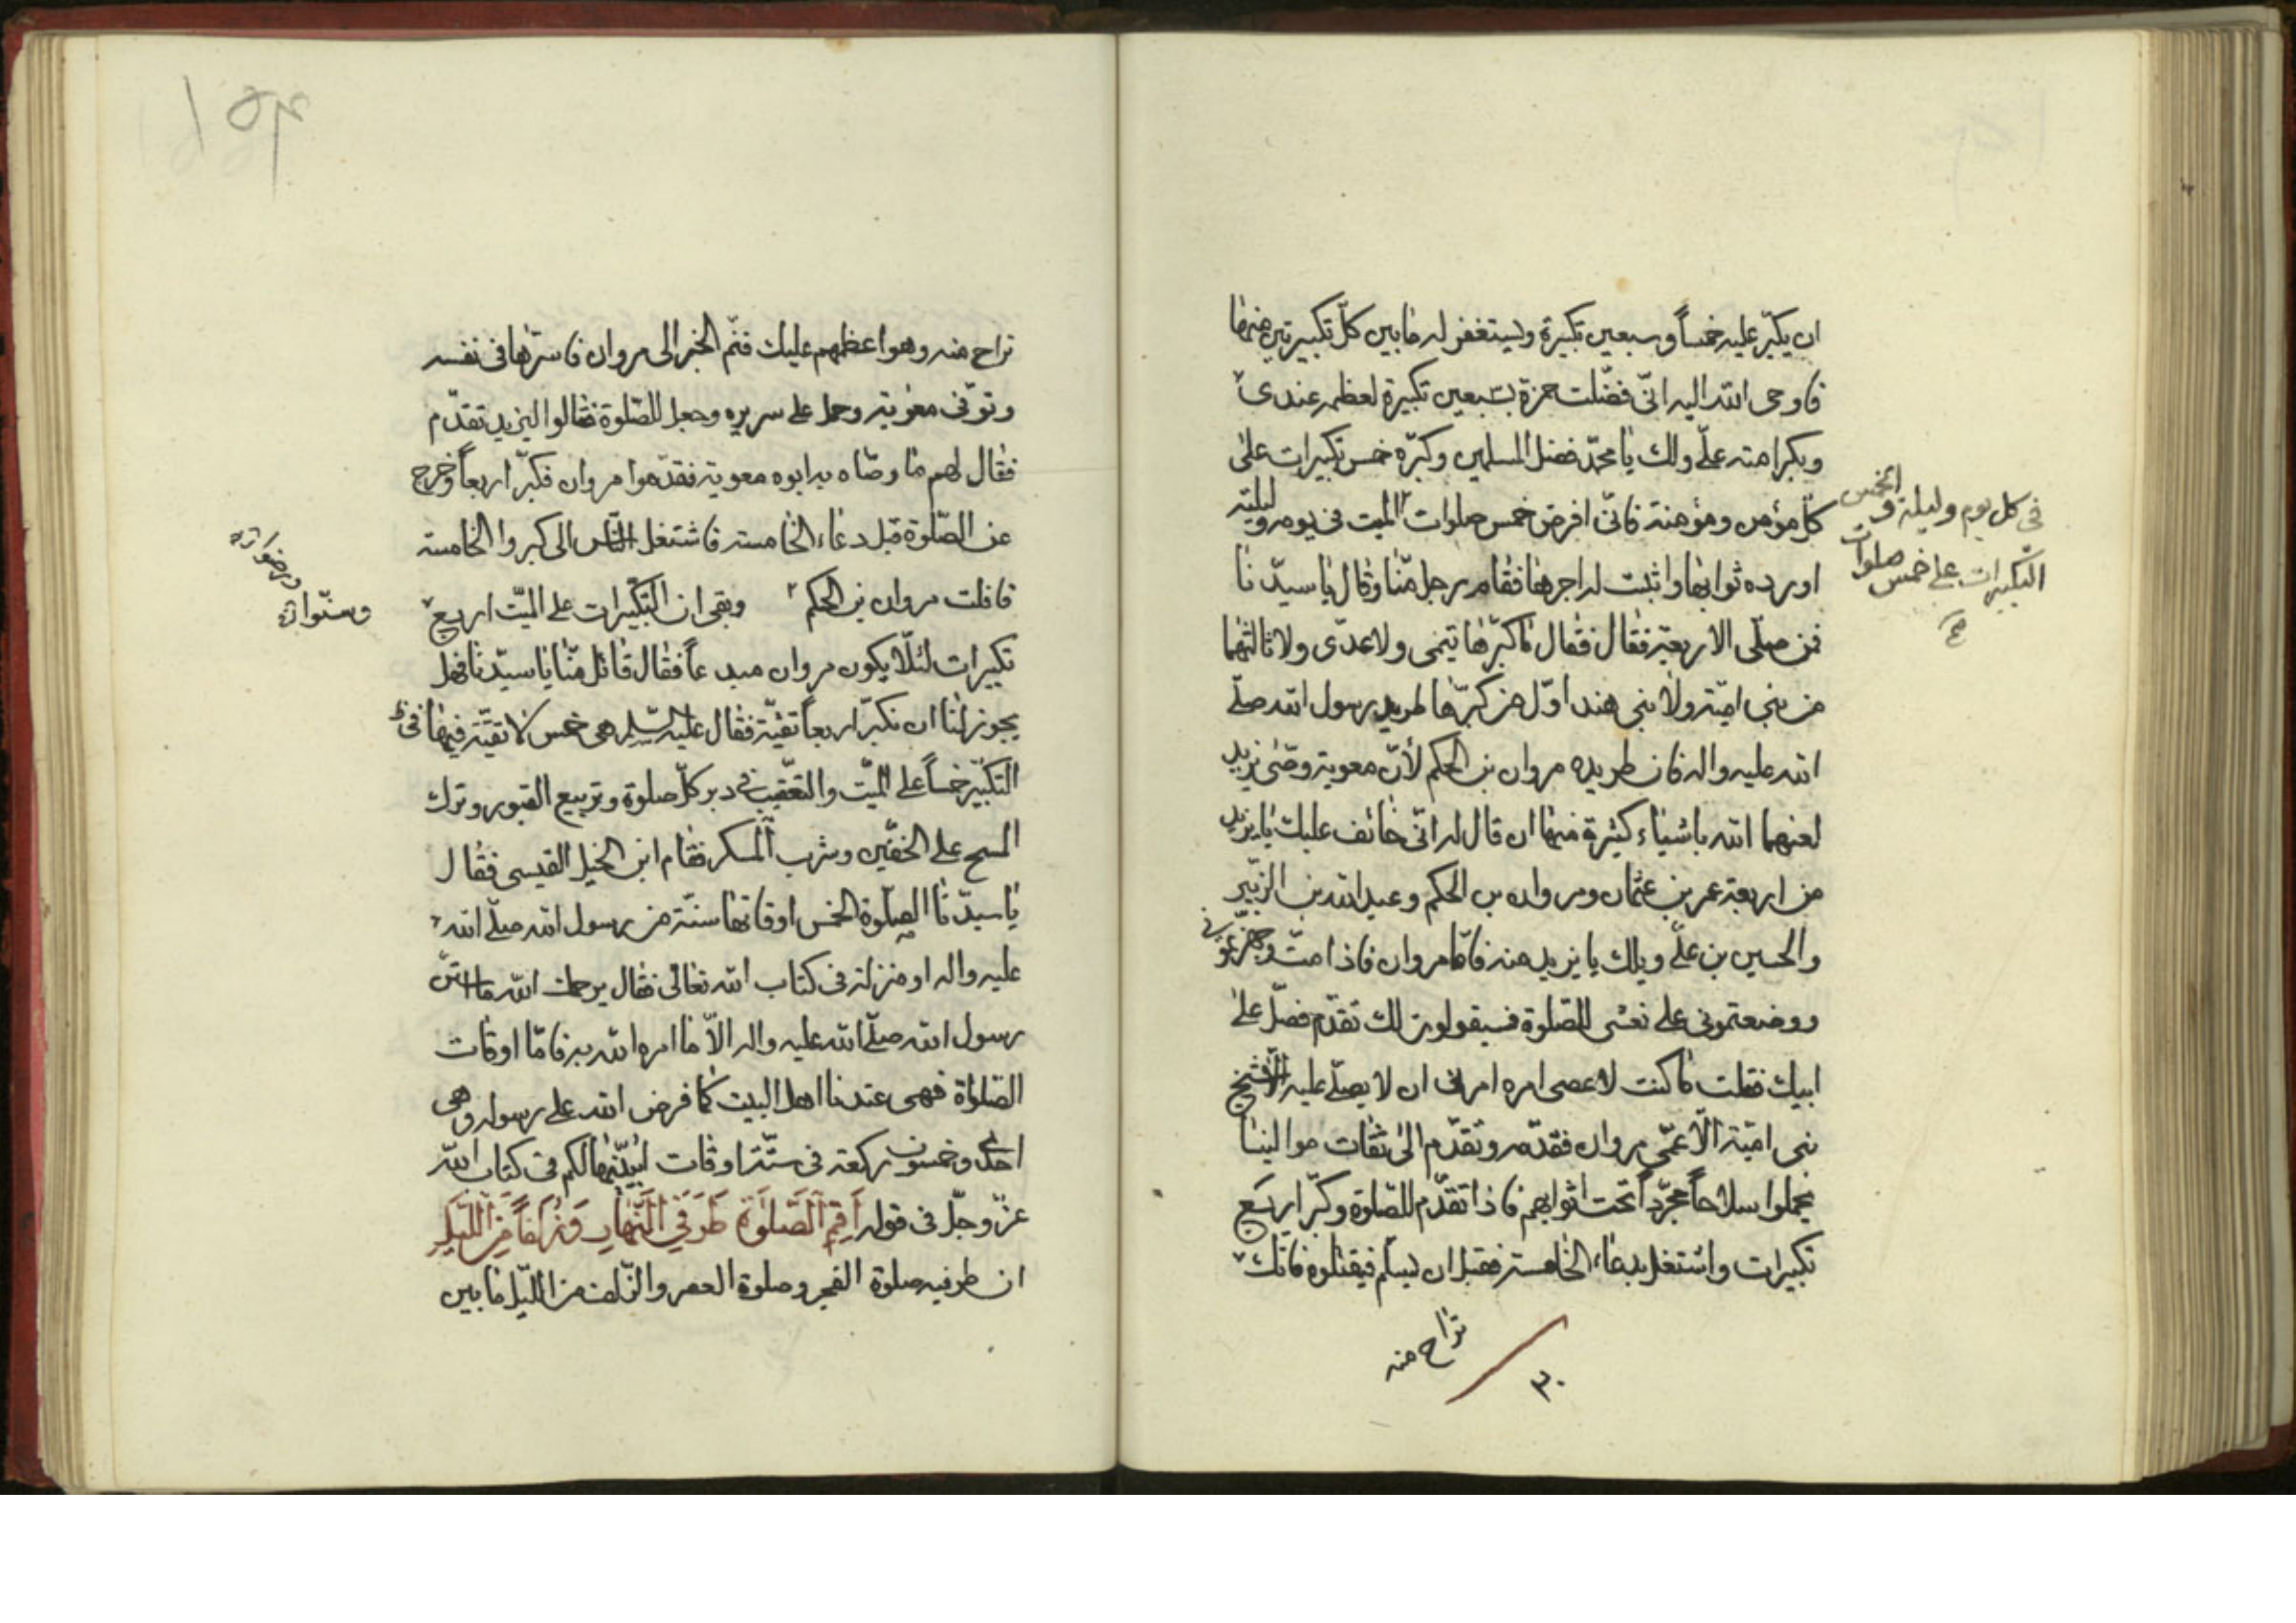 ان يكبّر عليه خمساً وسبعين تكبيرة ويستغفر له مابين كلّ تكبيرتين منها
فاوحى الله اليه انّى فضّلت حمزة بسبعين تكبيرة لعظمه عندى
وبكرامته علىّ ولك يا محمّد فضل المسلمين وكبّره خمس تكبيرات على
كل مؤمن ومؤمنة فانّى افرض خمس صلوات الميت فى يومه وليلته
فى كل يوم وليلة والخمس
التكبيرات على خمس صلوات
صح
اورده ثوابها واثبت له اجرها فقام رجل منّا وقال يا سيدنا
فمن صلّى الاربعة فقال فقال ما كبّرها تيمى ولا عدّى ولا ثالثهما
من بنى اميّة ولا بنى هند اوّل من كبّرها طريد رسول الله صلّى
الله عليه واله فان طريده مروان بن الحكم لأنّ معوية وصّى يزيد
لعنهما الله باشياء كثيرة منها ان قال له انّى خائف عليك يا يزيد
من اربعة عمر بن عثمان ومروان بن الحكم وعبد الله بن الزبير
والحسين بن علىّ ويلك يا يزيد منه فامّا مروان فاذا متّ وجهزتمونى
ووضعتمونى على نعشى للصّلوة فسيقولون لك تقدّم فصلّ على
ابيك فقلت ما كنت لاعصى امره امرنى ان لا يصلّى عليه الا شيخ
بنى اميّة الا عمّى مروان فقدّمه وتقدّم الى ثقات موالينا
يحملوا سلاحاً مجرّداً تحت اثوابهم فاذا تقدّم للصّلوة وكبّر اربع
تكبيرات واشتغل بدعاء الخامسة فقبل ان يسلّم فيقتلوه فانك
تراح منه
٣٠
تراح منه وهو اعظمهم عليك فنمّ الخبر الى مروان فاسرّها فى نفسه
وتوفّى معوية وحمل على سريره وجعل للصّلوة فقالوا ليزيد تقدّم
فقال لهم ما وصّاه به ابوه معوية فقدّموا مروان فكبّر اربعاً وخرج
عن الصّلوة قبل دعاء الخامسة فاشتغل النّاس الى كبروا الخامسة
فافلت مروان بن الحكم وبقى ان التكبيرات على الميّت اربع
تكبيرات لئلّا يكون مروان مبدعاً فقال قائل منّا يا سيّدنا فهل
يجوز لنا ان نكبّر اربعاً تقيّة فقال عليه السّلم هى خمس لا تقيّة فيها
التكبير خمساً على الميّت والتعقيب فى دبر كلّ صلوة وتربيع القبور وترك
المسح على الخفّين وشرب المسكر فقام ابن الخيل القيسى فقال
يا سيدّنا الصلوة الخمس اوقاتها سنّة من رسول الله صلّى الله
عليه واله او منزلة فى كتاب الله تعالى فقال يرحمك الله ما استنّ
رسول الله صلّى الله عليه واله الاّ ما امره الله به فامّا اوقات
الصّلوة فهى عندنا اهل البيت كما فرض الله على رسوله وهى
احدى وخمسون ركعة فى ستّة اوقات ابيّنها لكم فى كتاب الله
عزّ وجلّ فى قوله اَقِمِ الصَّلوٰةَ طَرَفَىِ النَّهَارِ وَزُلَفاً مِنَ اللَّيْلِ
ان طرفيه صلوة الفجر وصلوة العصر والزلف من اللّيل مابين